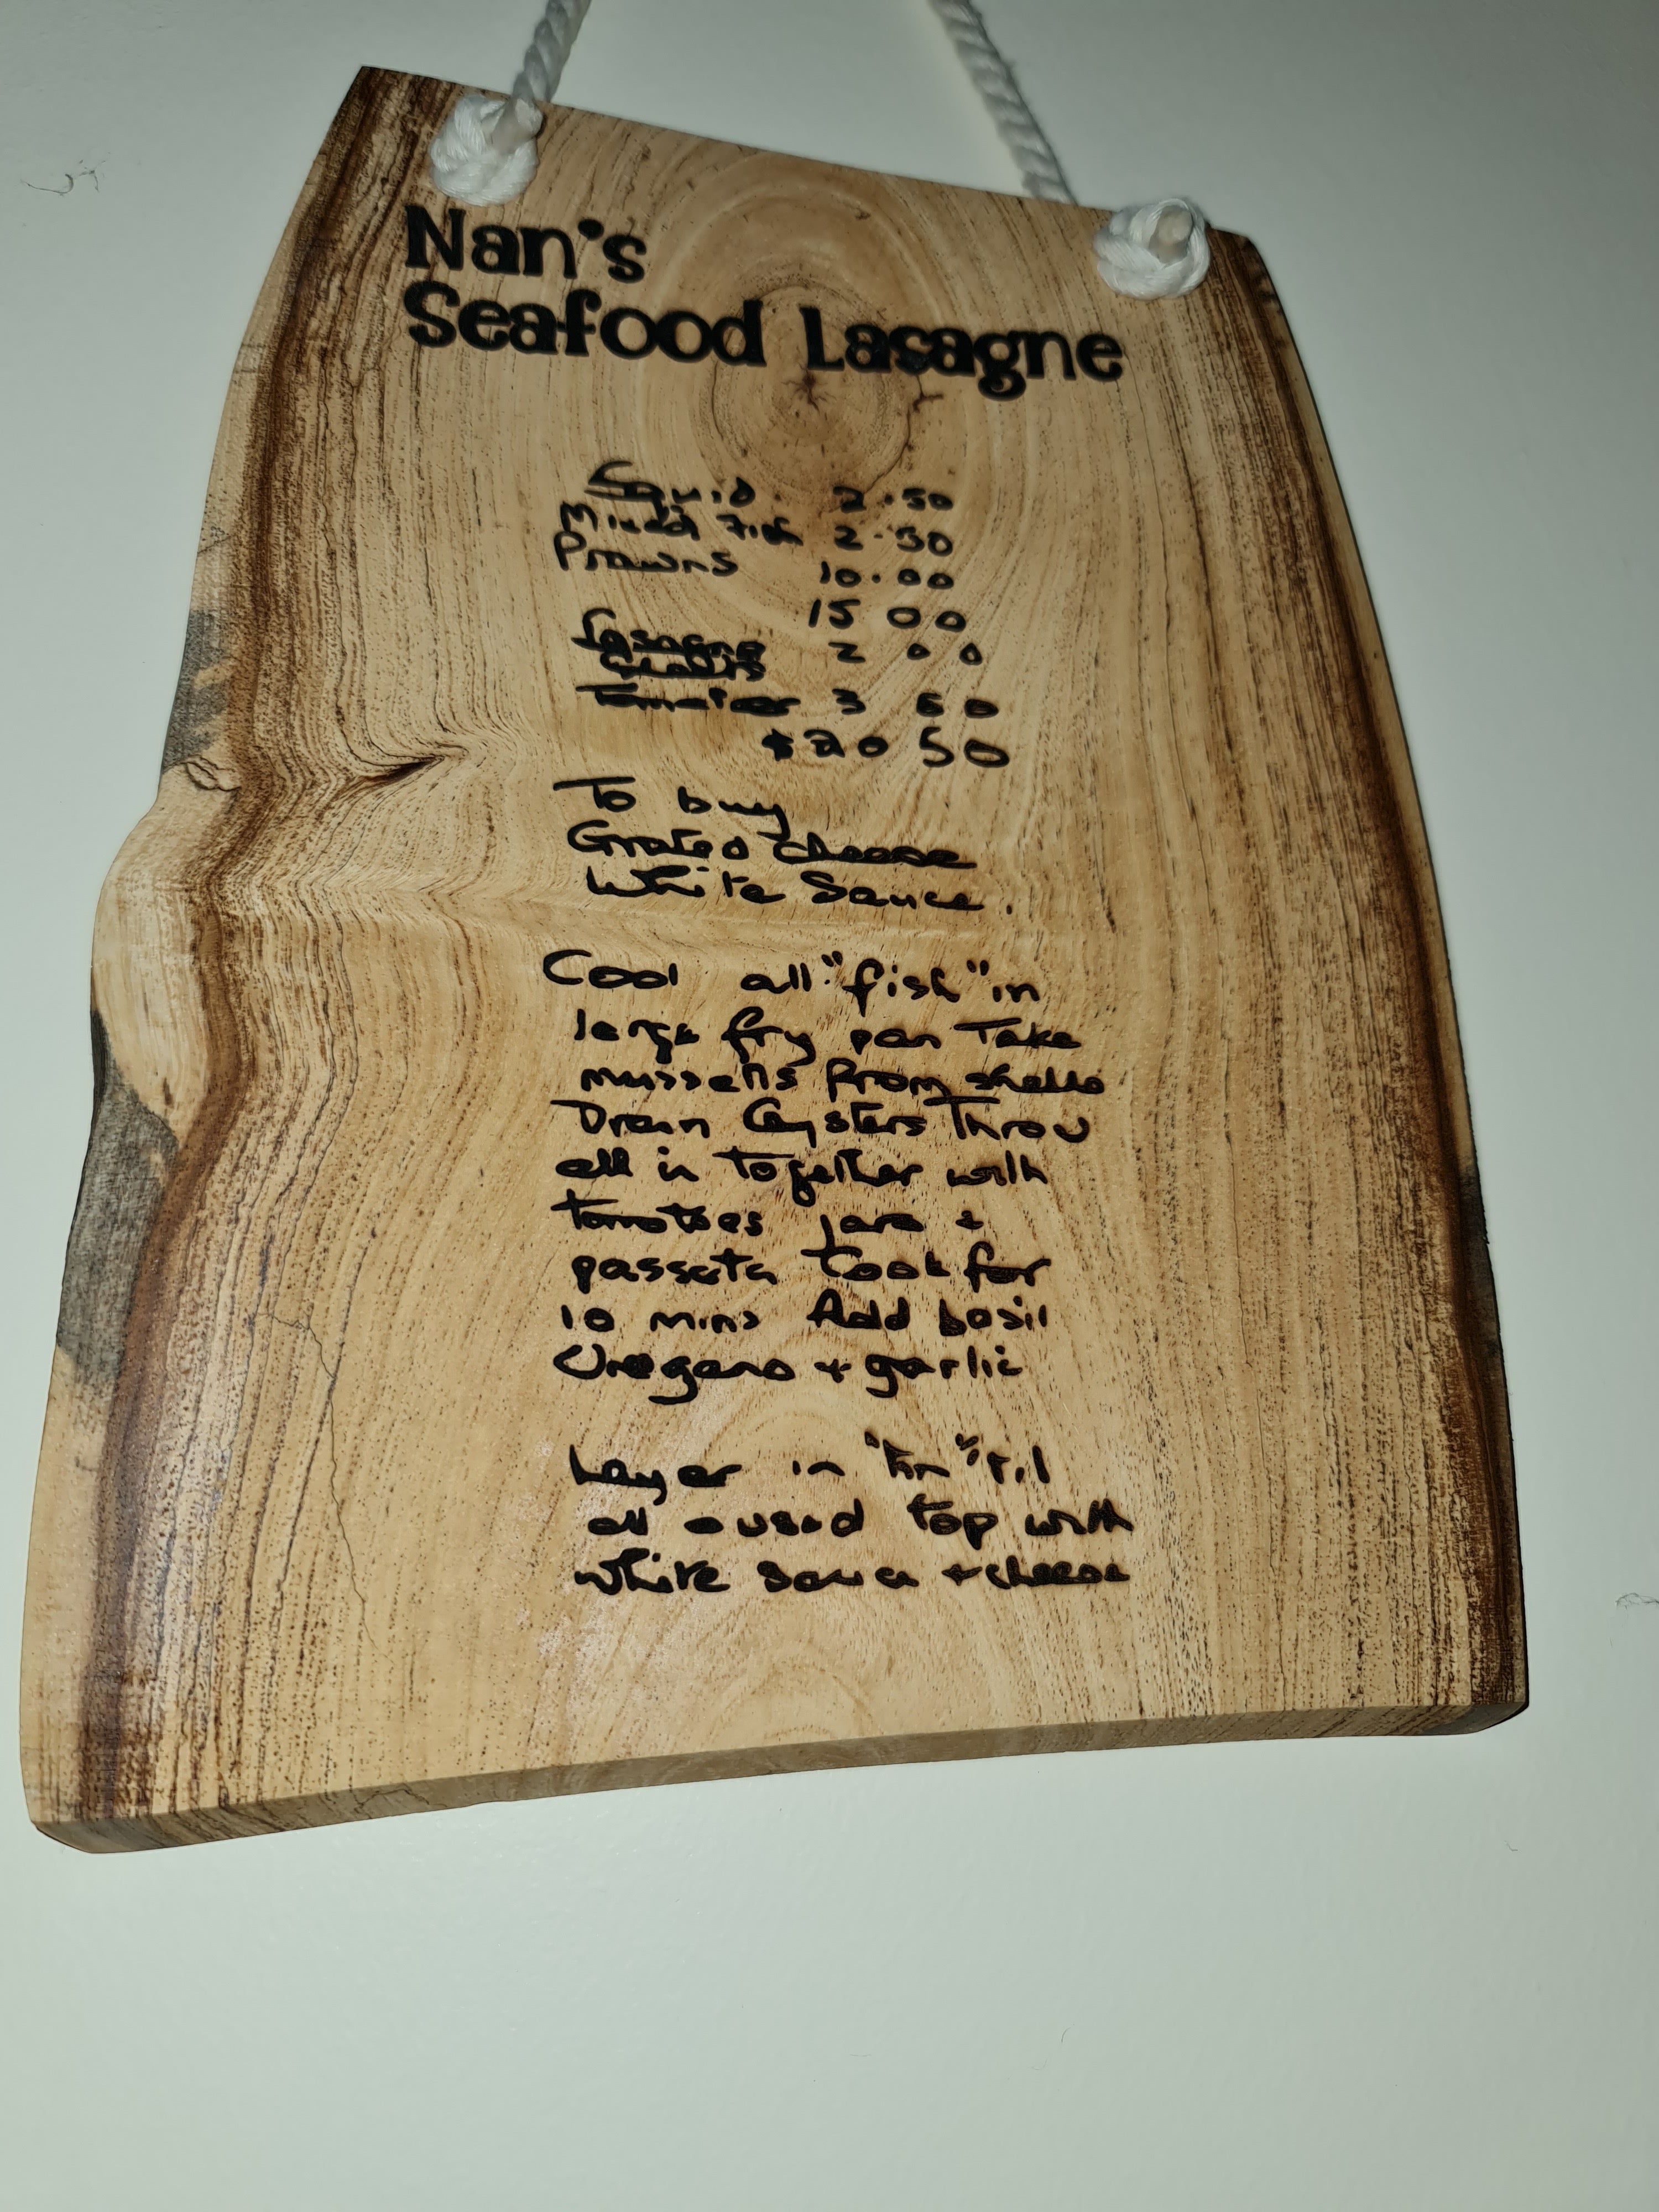 Nan's
Seafood Lasagne
Squid. 2.50
Mixed Fish 2.50
Prawns 10.00
15 00
Lasagne 2 00
Sheets
Tomatoes 3 50
$20 50
To buy
Grated cheese
White Sauce.
Cool all "fish" in
large fry pan Take
mussells from shells
Drain Oysters Throw
all in together with
tomatoes jars +
passata Cook for
10 mins Add basil
Oregano + garlic
Layer in "tin" til
all used top with
white sauce + cheese